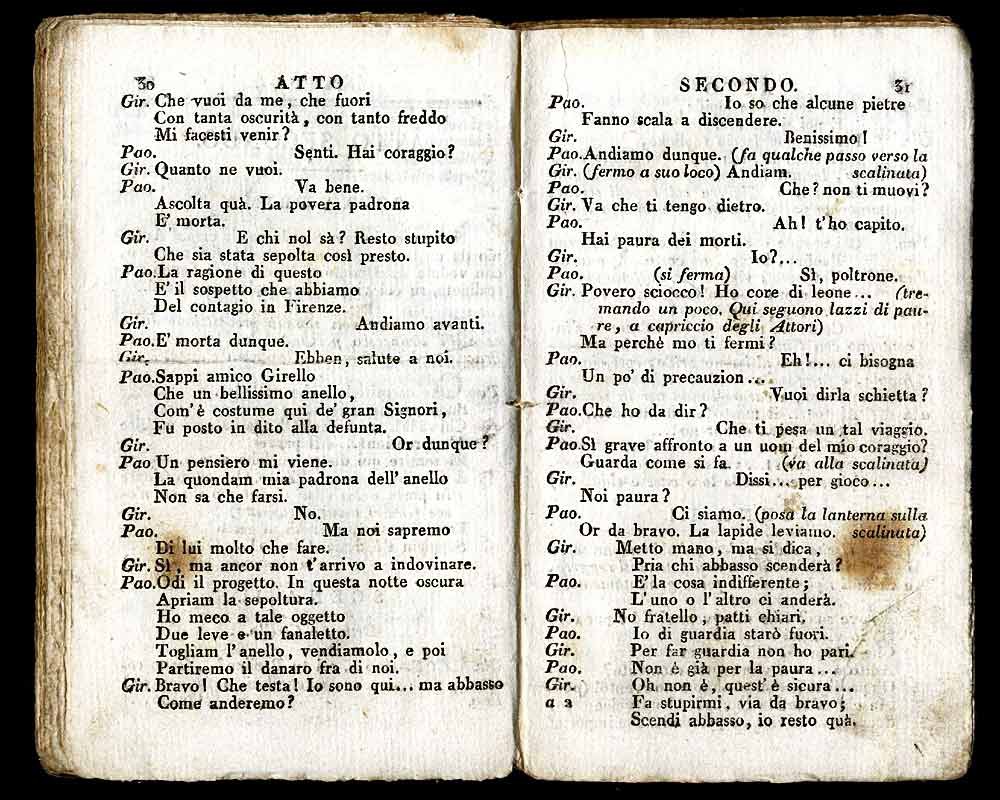 30 ATTO
Gir. Che vuoi da me, che fuori
Con tanta oscurità, con tanto freddo
Mi facesti venir?
Pao. Senti. Hai coraggio?
Gir. Quanto ne vuoi.
Pao. Va bene.
Ascolta quà. La povera padrona
E' morta.
Gir. E chi nol sà? Resto stupito
Che sia stata sepolta così presto.
Pao. La ragione di questo
E' il sospetto che abbiamo
Del contagio in Firenze.
Gir. Andiamo avanti.
Pao. E' morta dunque.
Gir. Ebben, salute a noi.
Pao. Sappi amico Girello
Che un bellissimo anello,
Com'è costume qui de' gran Signori,
Fu posto in dito alla defunta.
Gir. Or dunque?
Pao Un pensiero mi viene.
La quondam mia padrona dell' anello
Non sa che farsi.
Gir. No.
Pao. Ma noi sapremo
Di lui molto che fare.
Gir. Sì, ma ancor non t'arrivo a indovinare.
Pao. Odi il progetto. In questa notte oscura
Apriam la sepoltura.
Ho meco a tale oggetto
Due leve e un fanaletto.
Togliam l'anello, vendiamolo, e poi
Partiremo il danaro fra di noi.
Gir. Bravo! Che testa! Io sono qui... ma abbasso
Come anderemo?
SECONDO. 31
Pao. Io so che alcune pietre
Fanno scala a discendere.
Gir. Benissimo!
Pao. Andiamo dunque. (fa qualche passo verso la
Gir. (fermo a suo loco) Andiam. scalinata)
Pao. Che? non ti muovi?
Gir. Va che ti tengo dietro.
Pao. Ah! t'ho capito.
Hai paura dei morti.
Gir. Io?...
Pao. (si ferma) Sì, poltrone.
Gir. Povero sciocco! Ho core di leone... (tre-
mando un poco. Qui seguono lazzi di pau-
re, a capriccio degli Attori)
Ma perchè mo ti fermi?
Pao. Eh!... ci bisogna
Un po' di precauzion...
Gir. Vuoi dirla schietta?
Pao. Che ho da dir?
Gir. Che ti pesa un tal viaggio.
Pao. Sì grave affronto a un uom del mio coraggio?
Guarda come si fa. (va alla scalinata)
Gir. Dissi... per gioco...
Noi paura?
Pao. Ci siamo. (posa la lanterna sulla
Or da bravo. La lapide leviamo. scalinata)
Gir. Metto mano, ma si dica,
Pria chi abbasso scenderà?
Pao. E' la cosa indifferente;
L'uno o l'altro ci anderà.
Gir. No fratello, patti chiari.
Pao. Io di guardia starò fuori.
Gir. Per far guardia non ho pari.
Pao. Non è già per la paura...
Gir. Oh non è, quest' è sicura...
a 2 Fa stupirmi, via da bravo;
Scendi abbasso, io resto quà.